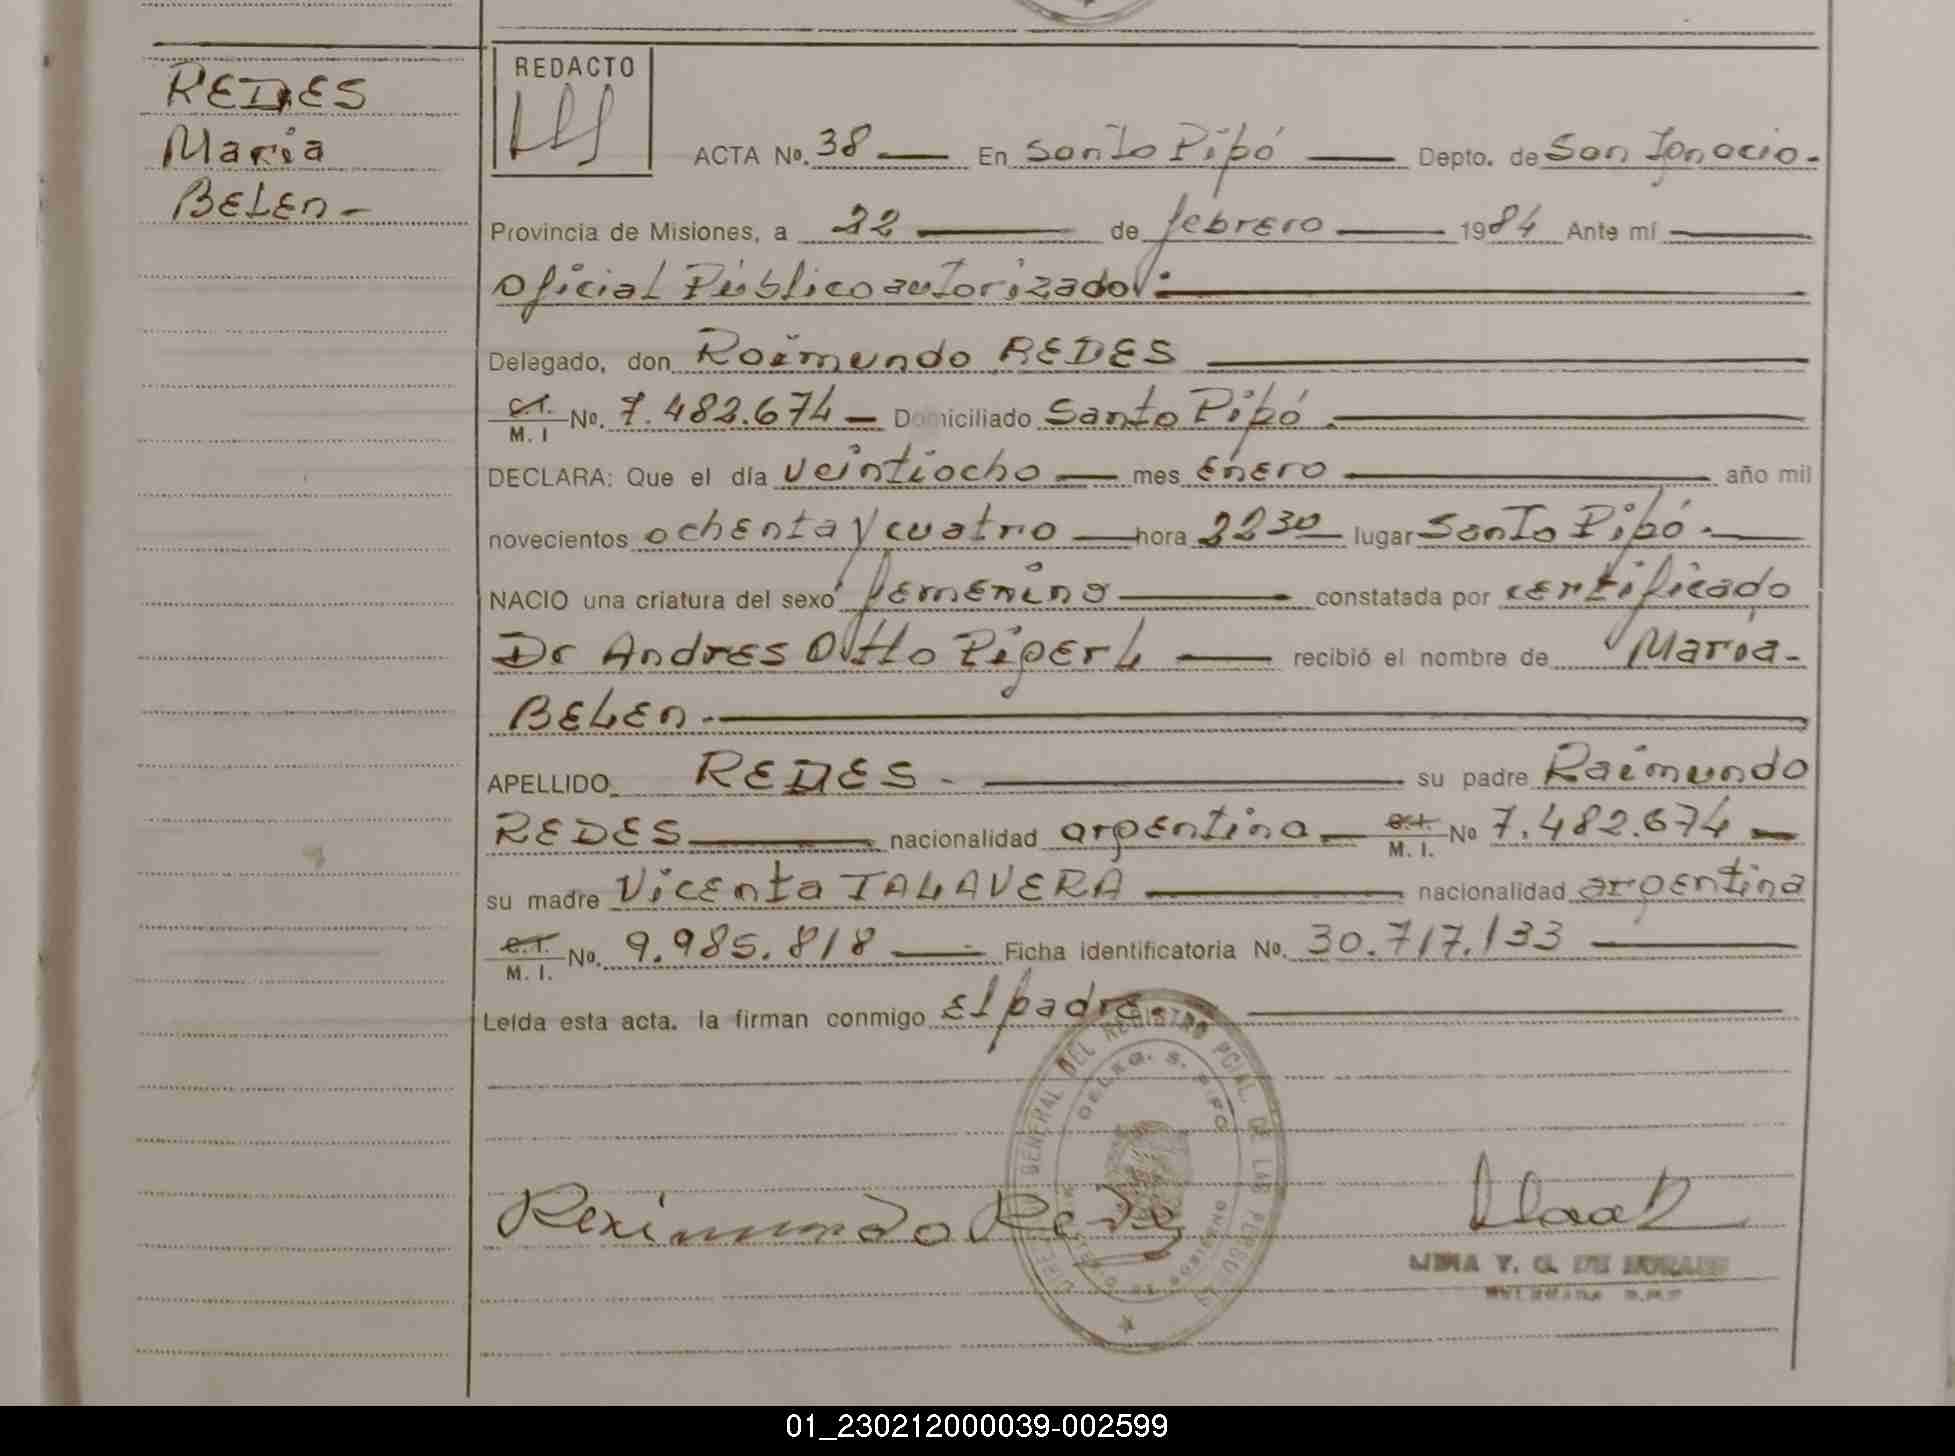 REDES
Maria
BELEn -
REDACTO
ACTA No. 38 — En Santo Pipó — Depto. de San Ignacio.
Provincia de Misiones, a 22 — de febrero — 1984 Ante mí —
Oficial Público autorizado. —
Delegado, don Raimundo REDES —
C.I. M. I No. 7.482.674 — Domiciliado Santo Pipó. —
DECLARA: Que el día veintiocho — mes enero — año mil
novecientos ochenta y cuatro — hora 22 30 lugar Santo Pipó. —
NACIO una criatura del sexo femenino — constatada por certificado
Dr Andres Otto — recibió el nombre de María -
BELEn. —
APELLIDO REDES - — su padre Raimundo
REDES — nacionalidad argentina — C.I. M. I. No 7.482.674 —
su madre Vicenta TALAVERA — nacionalidad argentina
C.I. M. I. No. 9.985.818 — Ficha identificatoria No. 30.717.133 —
Leída esta acta. la firman conmigo el padre. —
GENERAL DEL REGISTRO PCIAL. DE LAS PERSONAS
DELEG. S. PIPO
Raimundo Redes
01_230212000039-002599